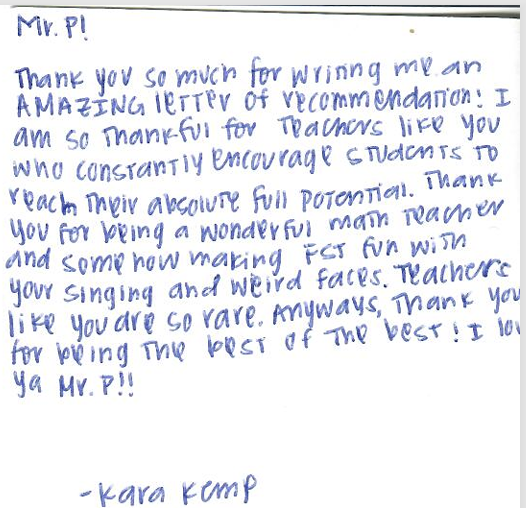 Mr. P!
Thank you so much for writing me an
AMAZING letter of recommendation! I
am so thankful for teachers like you
who constantly encourage students to
reach their absolute full potential. Thank
you for being a wonderful math teacher
and somehow making FST fun with
your singing and weird faces. Teachers
like you are so rare. Anyways, thank you
for being the best of the best! I lov
ya Mr. P!!
-Kara Kemp